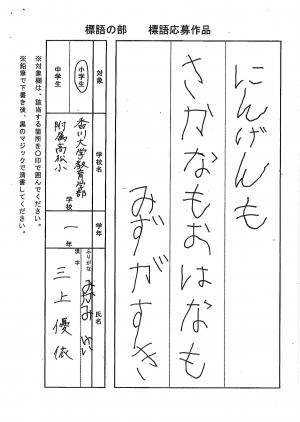 標語の部　標語応募作品
にんげんも
さかなもおはなも
みずがすき
対象
小学生
中学生
学校名
香川大学教育学部
附属高松小
学校
学年
一年
ふりがな
みかみ ゆい
漢字
氏名
三上優依
※対象欄は、該当する箇所を〇印で囲んでください。
※鉛筆で下書き後、黒のマジックで清書してください。